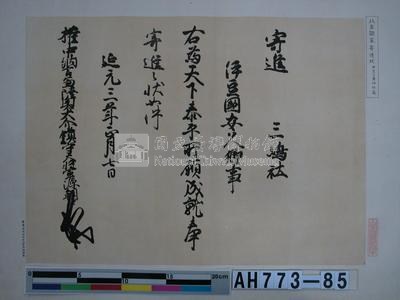 寄進　三嶋社
伊豆國安久郷事
右為天下泰平所願成就奉
寄進之状如件
延元三年正月七日
權中納言兼陸奥大介鎮守府大将軍源朝臣
北畠顯家寄進状
National Taiwan Museum
0 5 10 15 20cm
AH773-85